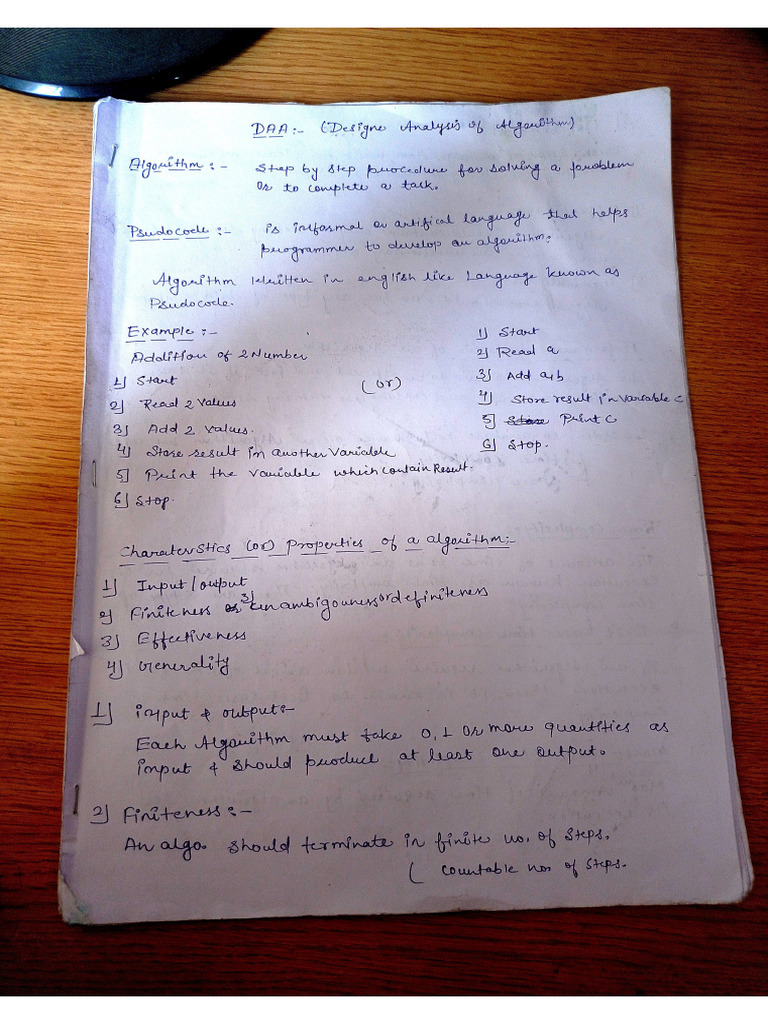 DAA :- (Designe Analysis of Algorithm)
Algorithm :- Step by step procedure for solving a problem
or to complete a task.
Psudocode :- is informal or artifical language that helps
programmer to develop an algorithm.
Algorithm written in english like Language known as
Psudocode.
Example :-
Addition of 2 Number
1) Start
2) Read 2 values
3) Add 2 values.
4) Store result in another Variable
5) Print the variable which contain Result.
6) Stop.
(or)
1) Start
2) Read a
3) Add a,b
4) Store result in variable C
5) Store Print C
6) Stop.
Charaterstics (or) Properties of a algorithm:-
1) Input/output
2) Finiteness 3) unambigouness or definiteness
3) Effectiveness
4) Generality
1) input & output:-
Each Algorithm must take 0, 1 or more quantities as
input & should product at least one output.
2) Finiteness :-
An algo. should terminate in finite no. of steps.
( countable no. of steps.